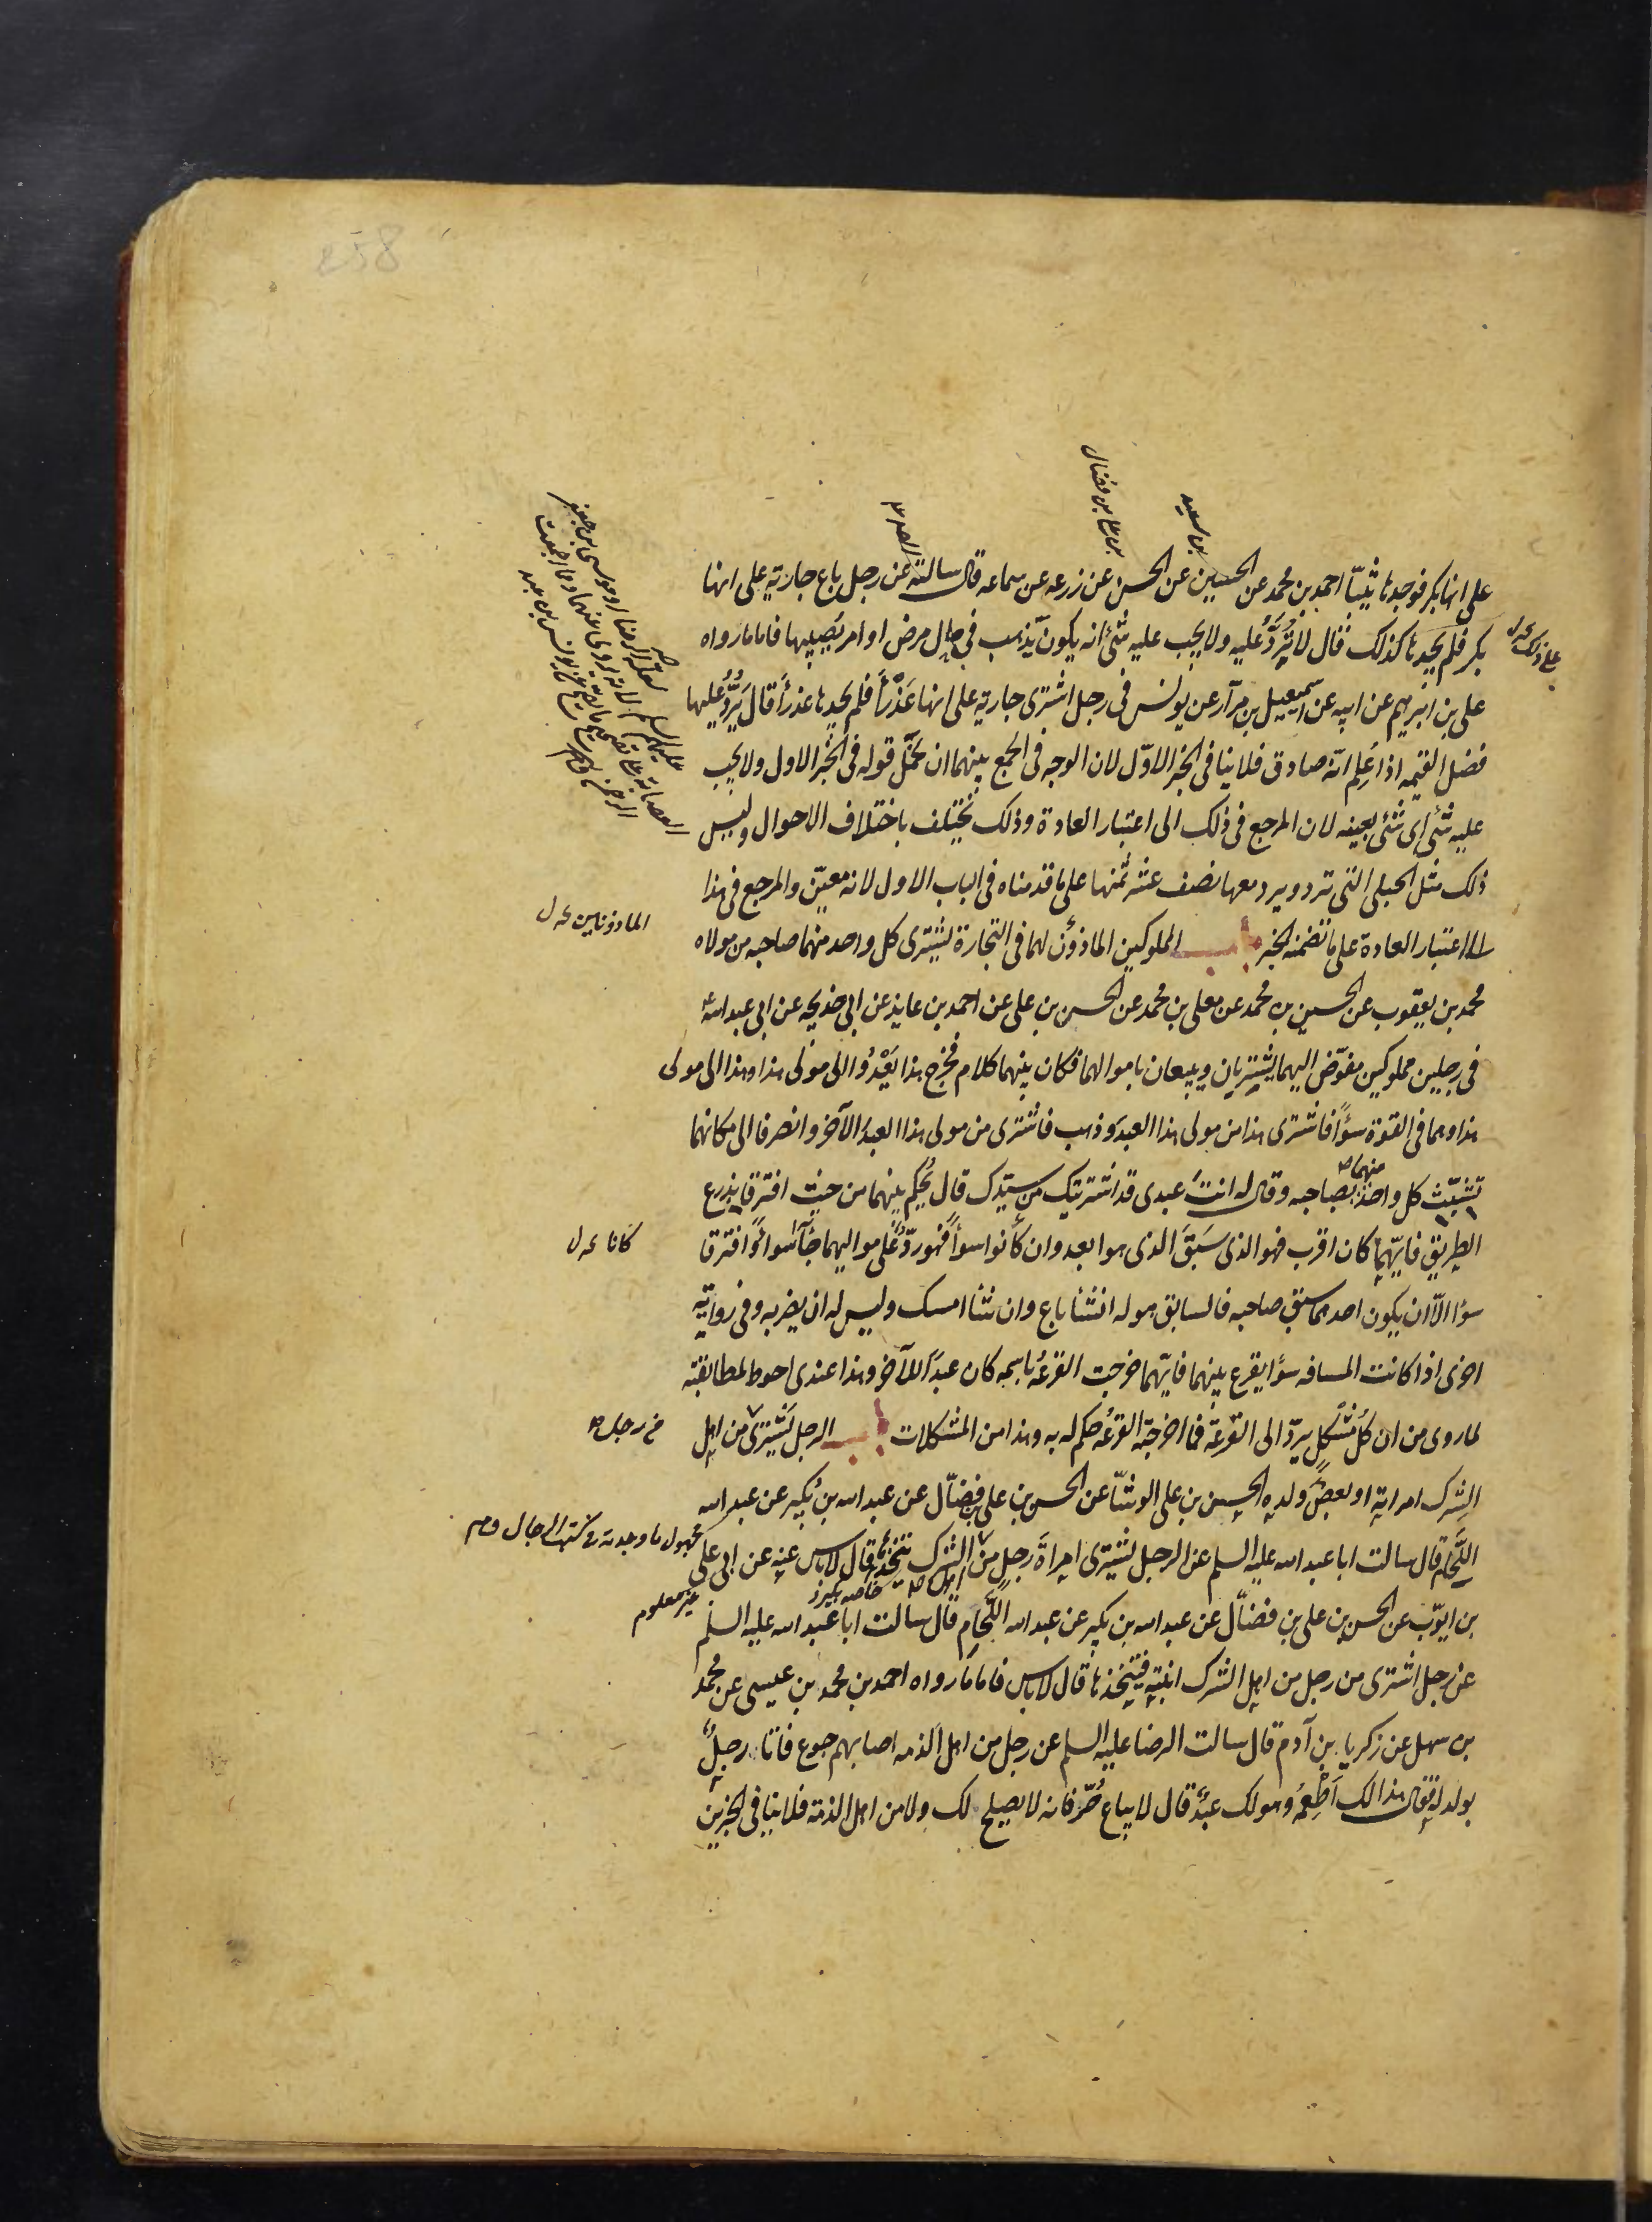 بن سعيد
بن علي بن فضال
على انها بكر فوجدها ثيبّا احمد بن محمد عن الحسين عن الحسن عن زرعه عن سماعه قال سالته عن رجل باع جارية على انها
بكر فلم يجدها كذلك قال لا تُردّ عليه ولا يجب عليه شئ انه يكون يذهب في حال مرض او امر يصيبها فاما ما رواه
على بن ابرهيم عن ابيه عن اسمعيل بن مرّار عن يونس في رجل اشترى جارية على انها عذرآ فلم يجدها عذرآ قال يردّ عليها
فضل القيمه اذا عُلِم انه صادق فلا ينافى الخبر الاوّل لان الوجه في الجمع بينهما ان نحمل قوله في الخبر الاول ولا يجب
عليه شئ اى شئ بعينه لان المرجع في ذلك الى اعتبار العادة وذلك يختلف باختلاف الاحوال وليس
ذلك مثل الحبلى التى ترد ويرد معها نصف عشر ثمنها على ما قدمناه في الباب الاول لانه معيّن والمرجع في هذا
الى اعتبار العادة على ما تضمنه الخبر باب المملوكين الماذون لهما في التجارة يشترى كل واحد منهما صاحبه من مولاه
الماذونين
محمد بن يعقوب عن الحسين بن محمد عن معلى بن محمد عن الحسن بن على عن احمد بن عايذ عن ابى خديجه عن ابى عبد الله ع
في رجلين مملوكين مفوّض اليهما يشتريان ويبيعان باموالهما فكان بينهما كلام فخرج هذا يَعْدُو الى مولى هذا وهذا الى مولى
هذا وهما في القوة سوآ فاشترى هذا من مولى هذا العبد وذهب فاشترى من مولى هذا العبد الآخر وانصرفا الى مكانهما
تشبّث كل واحد منهما بصاحبه وقال له انت عبدى قد اشتريتك من سيّدك قال يُحكم بينهما من حيث افترقا يذرع
الطريق فايّهما كان اقرب فهو الذى سَبَقَ الذى هو ابعد وان كانوا سوآ فهو ردّ على مواليهما جآءا سوآ وافترقا
كانا
سوا الّا ان يكون احدهما سبق صاحبه فالسابق هو له ان شا باع وان شا امسك وليس له ان يضربه وفى رواية
اخرى اذا كانت المسافه سوآ يقرع بينهما فايّهما خرجت القرعُه باسمه كان عبدَ للآخر وهذا عندى احوط لمطابقته
لما روى من ان كل مُشكِلٍ يردّ الى القرعة فما اخرجته القرعُه حكم له به وهذا من المشكلات باب الرجل يشترى من اهل
الشرك امراته او بعض ولده الحسين بن على الوشّا عن الحسن بن على بن فضّال عن عبد الله بن بُكير عن عبد الله
اللّحّام قال سالت ابا عبد الله عليه السلم عن الرجل يشترى امراةَ رجلٍ من الشرك يتخذها قال لا باس عنه عن ابى على
مجهول ما وجدته في كتب الرجال
غير معلوم
بن ايوّب عن الحسن بن على بن فضّال عن عبد الله بن بكير عن عبد الله اللّحّام قال سالت ابا عبد الله عليه السلم
عن رجل اشترى من رجل من اهل الشرك ابنته فيتخذها قال لا باس فاما ما رواه احمد بن محمد بن عيسى عن محمد
بن سهل عن زكريا بن آدم قال سالت الرضا عليه السلم عن رجل من اهل الذمه اصابهم جوع فاتا رجلٌ
بولد له فقال هذا لك اَطْعِمْه وهو لك عبدٌ قال لا يباع حُرّ فانه لا يصلح لك ولا من اهل الذمة فلا ينافى الخبرين